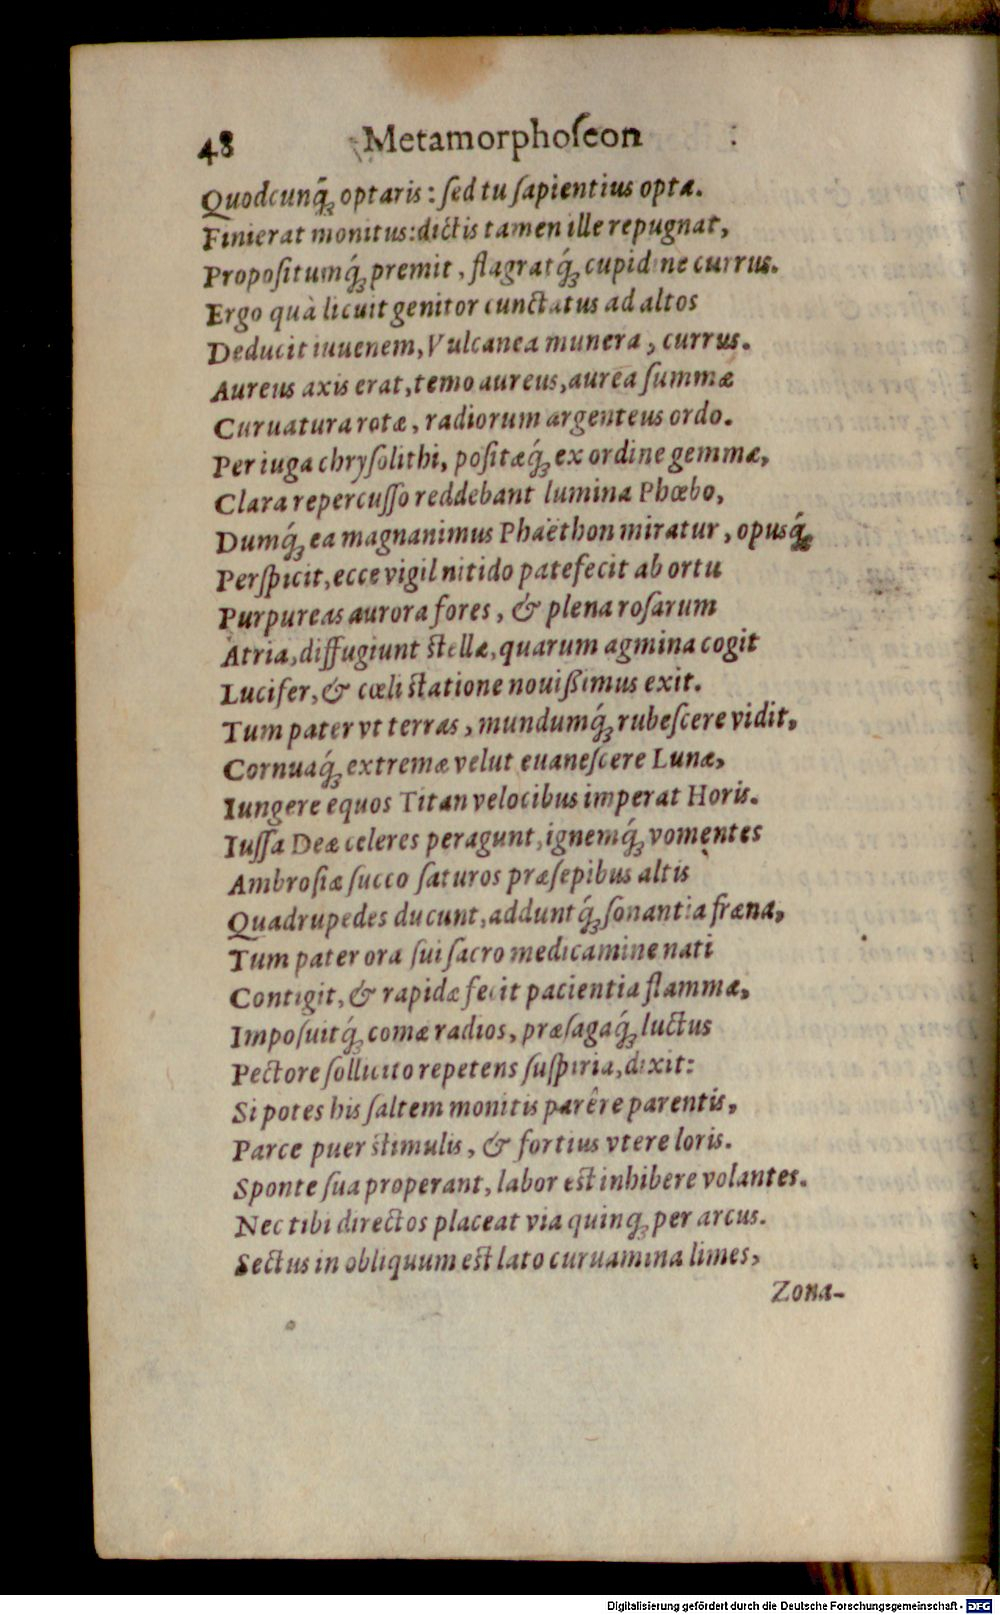 48 Metamorphoſeon
Quodcunq́ꝫ optaris: ſed tu ſapientius opta.
Finierat monitus: dictis tamen ille repugnat,
Propoſitumq́ꝫ premit, flagratq́ꝫ cupidine currus.
Ergo quà licuit genitor cunctatus ad altos
Deducit iuuenem, Vulcanea munera, currus.
Aureus axis erat, temo aureus, aurea ſummæ
Curuatura rotæ, radiorum argenteus ordo.
Per iuga chryſolithi, poſitæq́ꝫ ex ordine gemmæ,
Clara repercuſſo reddebant lumina Phœbo,
Dumq́ꝫ ea magnanimus Phaëthon miratur, opusq́ꝫ
Perſpicit, ecce vigil nitido patefecit ab ortu
Purpureas aurora fores, & plena roſarum
Atria, diffugiunt ſtellæ, quarum agmina cogit
Lucifer, & cœli ſtatione nouißimus exit.
Tum pater vt terras, mundumq́ꝫ rubeſcere vidit,
Cornuaq́ꝫ extremæ velut euaneſcere Lunæ,
Iungere equos Titan velocibus imperat Horis.
Iuſſa Deæ celeres peragunt, ignemq́ꝫ vomentes
Ambroſiæ ſucco ſaturos præſepibus altis
Quadrupedes ducunt, adduntq́ꝫ ſonantia fræna,
Tum pater ora ſui ſacro medicamine nati
Contigit, & rapidæ fecit pacientia flammæ,
Impoſuitq́ꝫ comæ radios, præſagaq́ꝫ luctus
Pectore ſollicito repetens ſuſpiria, dixit:
Si potes his ſaltem monitis parêre parentis,
Parce puer ſtimulis, & fortius vtere loris.
Sponte ſua properant, labor eſt inhibere volantes.
Nec tibi directos placeat via quinqꝫ per arcus.
Sectus in obliquum eſt lato curuamina limes,
Zona-
Digitalisierung gefördert durch die Deutsche Forschungsgemeinschaft - DFG